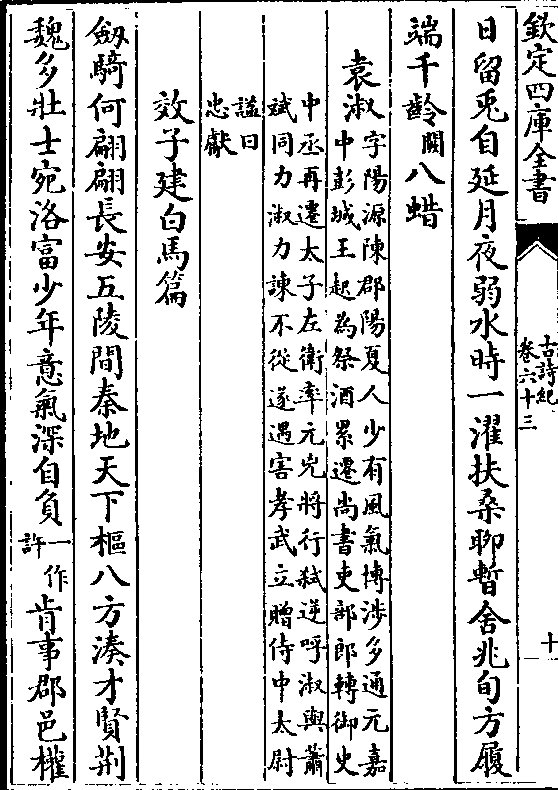 欽定四庫全書
古詩紀
卷六十三
十
日留兎自延月夜弱水時一濯扶桑聊暫舍兆旬方履
端千齡闗八蜡
袁淑字陽源陳郡陽夏人少有風氣博涉多通元嘉
中彭城王起為祭酒累遷尚書吏部郎轉御史
中丞再遷太子左衛率元兇將行弑逆呼淑與蕭
斌同力淑力諌不從遂遇害孝武立贈侍中太尉
諡曰
忠獻
效子建白馬篇
劔騎何翩翩長安五陵間秦地天下樞八方湊才賢荆
魏多壯士宛洛富少年意氣深自負一作許肯事郡邑權